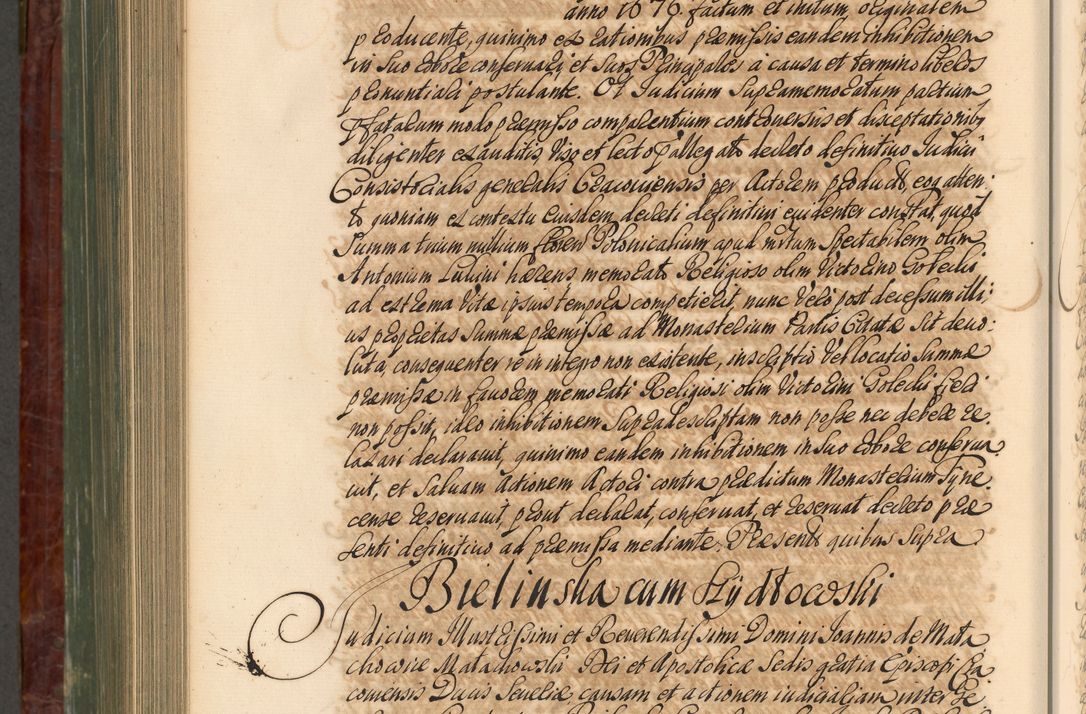 anno 1676. factum et initum, originalem
producente, quinimo ex rationibus praemissis eandem inhibitionem
in suo robore conservari, et suos Principales a causa et termino liberos
pronuntiari postulante. Et Iudicium supramemoratum partium
praefatarum modo praemisso comparentium controversiis et disceptationibus
diligenter exauditis, viso et lecto allegato decreto definitivo Iudicii
Consistorialis generalis Cracoviensis per Actorem producto, eoque atten
to quoniam ex contextu eiusdem decreti definitivi evidenter constat, quod
summa trium millium floren Polonicalium apud nutum Spectabilem olim
Antonium haerens memorato Religioso olim Victorino Golecki
ad extrema vitae ipsius tempora competierit, nunc vero post decessum illi:
us proprietas summae praemissae ad Monasterium Partis Citatae sit devo:
luta, consequenter re in integro non existente, inscriptio vel locatio summae
praemissae in favorem memorati Religiosi olim Victorini Golecki fieri
non possit, ideo inhibitionem supradescriptam non posse nec debere re
laxari declaravit, quinimo eandem inhibitionem in suo robore conserva
vit, et salvam actionem Actori contra praedictum Monasterium Tyne
cense reservavit, prout declarat, conservat, et reservat decreto prae
senti definitivo ad praemissa mediante. Praesent quibus supra
Bielinska cum Szydłowski
Iudicium Illustrissimi et Reverendissimi Domini Ioannis de Mała
chowice Małachowski Dei et Apostolicae Sedis gratia Episcopi Cra
coviensis Ducis Severiae, causam et actionem iudicialiam inter Ge